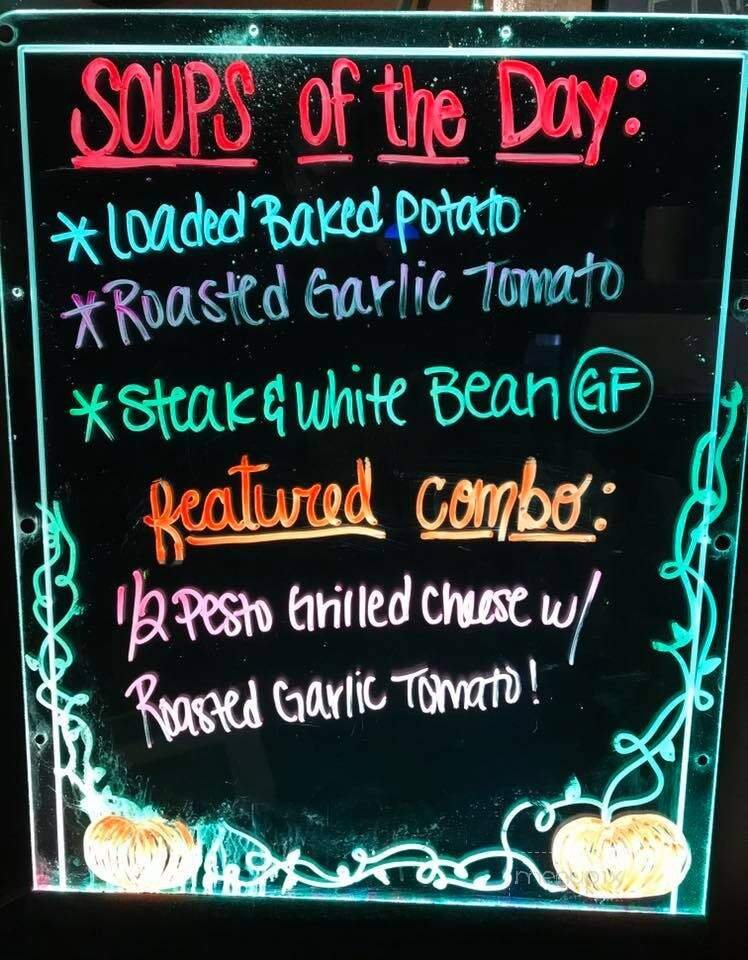 SOUPS of the Day:
* Loaded Baked Potato
* Roasted Garlic Tomato
* Steak & White Bean GF
featured combo:
1/2 Pesto Grilled Cheese w/
Roasted Garlic Tomato!